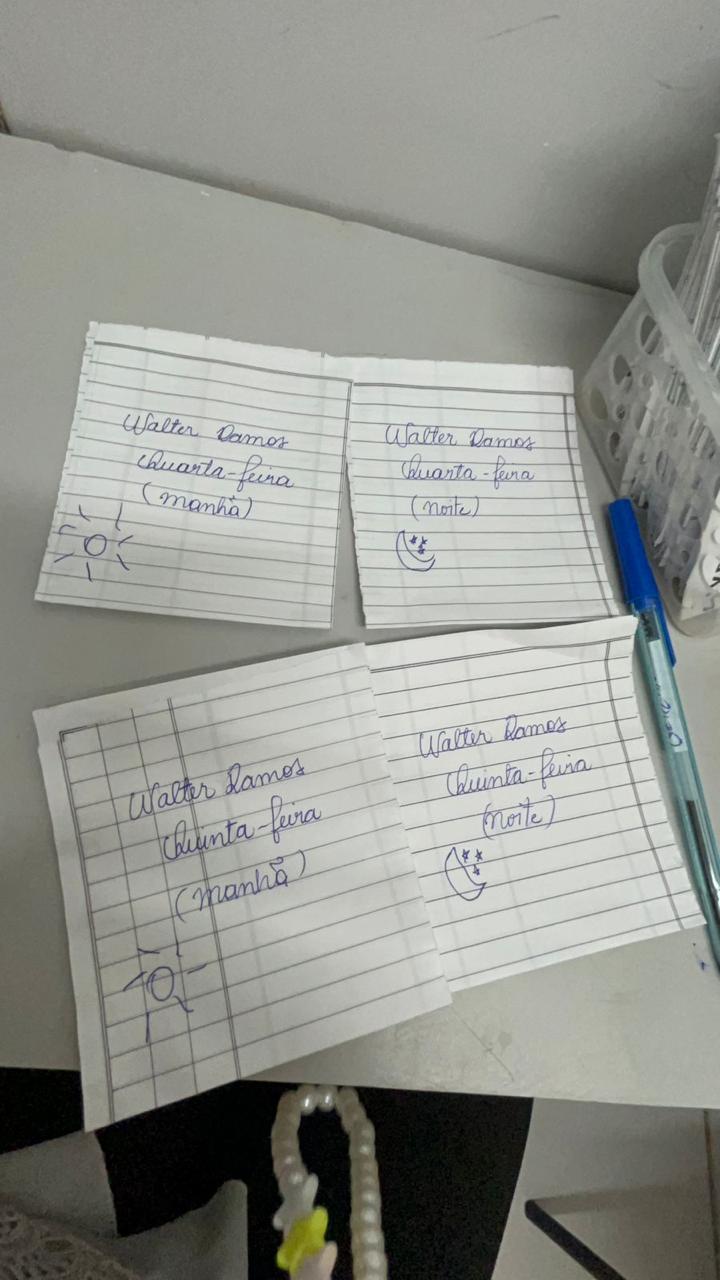 Walter Ramos
Quarta-feira
(manhã)
Walter Ramos
Quarta-feira
(noite)
Walter Ramos
Quinta-feira
(manhã)
Walter Ramos
Quinta-feira
(noite)